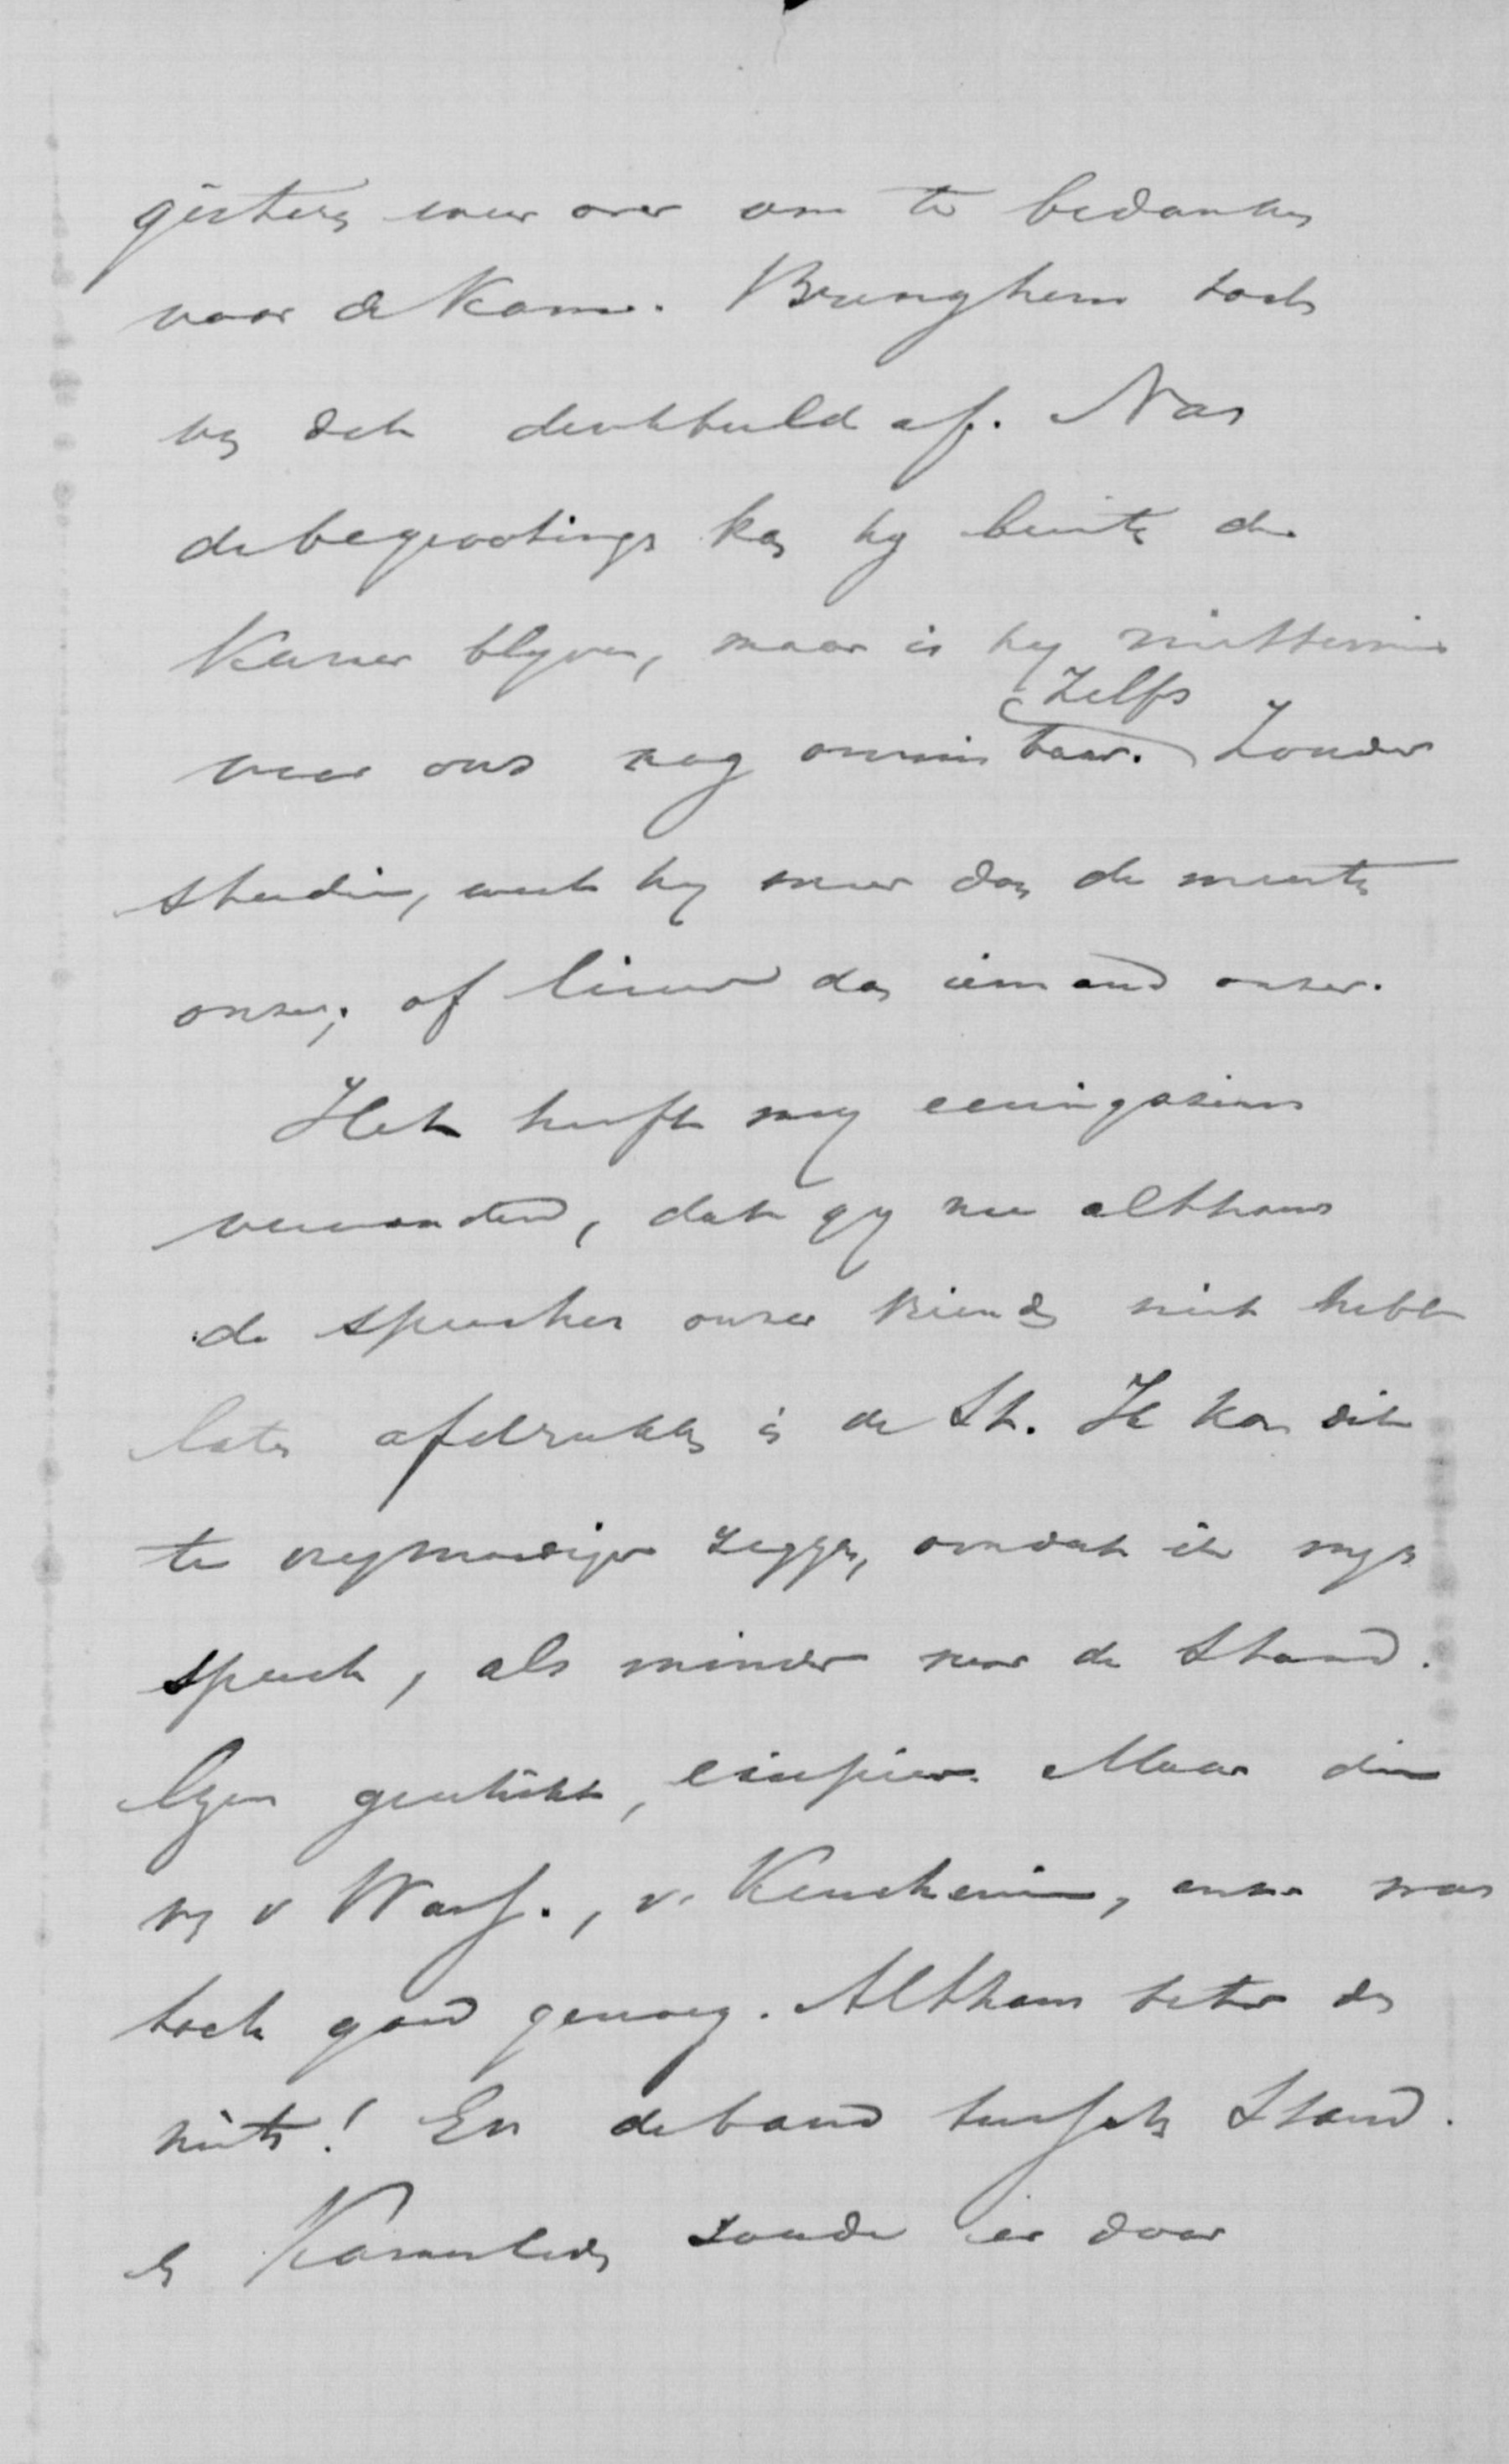 gisteren weer over om te bedanken
voor de Kamer. Breng hem toch
van dat denkbeeld af. Na
de begrootings kan hy buiten de
Kamer blyven, maar is hy niettemin
zelfs
voor ons nog onmisbaar. Zonder
studie, weet hy meer dan de meeste
onzer, of liever dan iemand onzer.
Het heeft my eenigszins
verwonderd, dat gy nu althans
de speeches onzer vrienden niet hebt
laten afdrukken in de St. Ik kan dit
te vrymoediger zeggen, omdat ik myn
speech, als minder voor de Stand.
lezers geschikt, excipieer. Maar die
van v Wass., v. Keuchenius, enz. was
toch goed genoeg. Althans beter dan
niets! En de band tusschen Stand.
en Kamerleden zoude er door